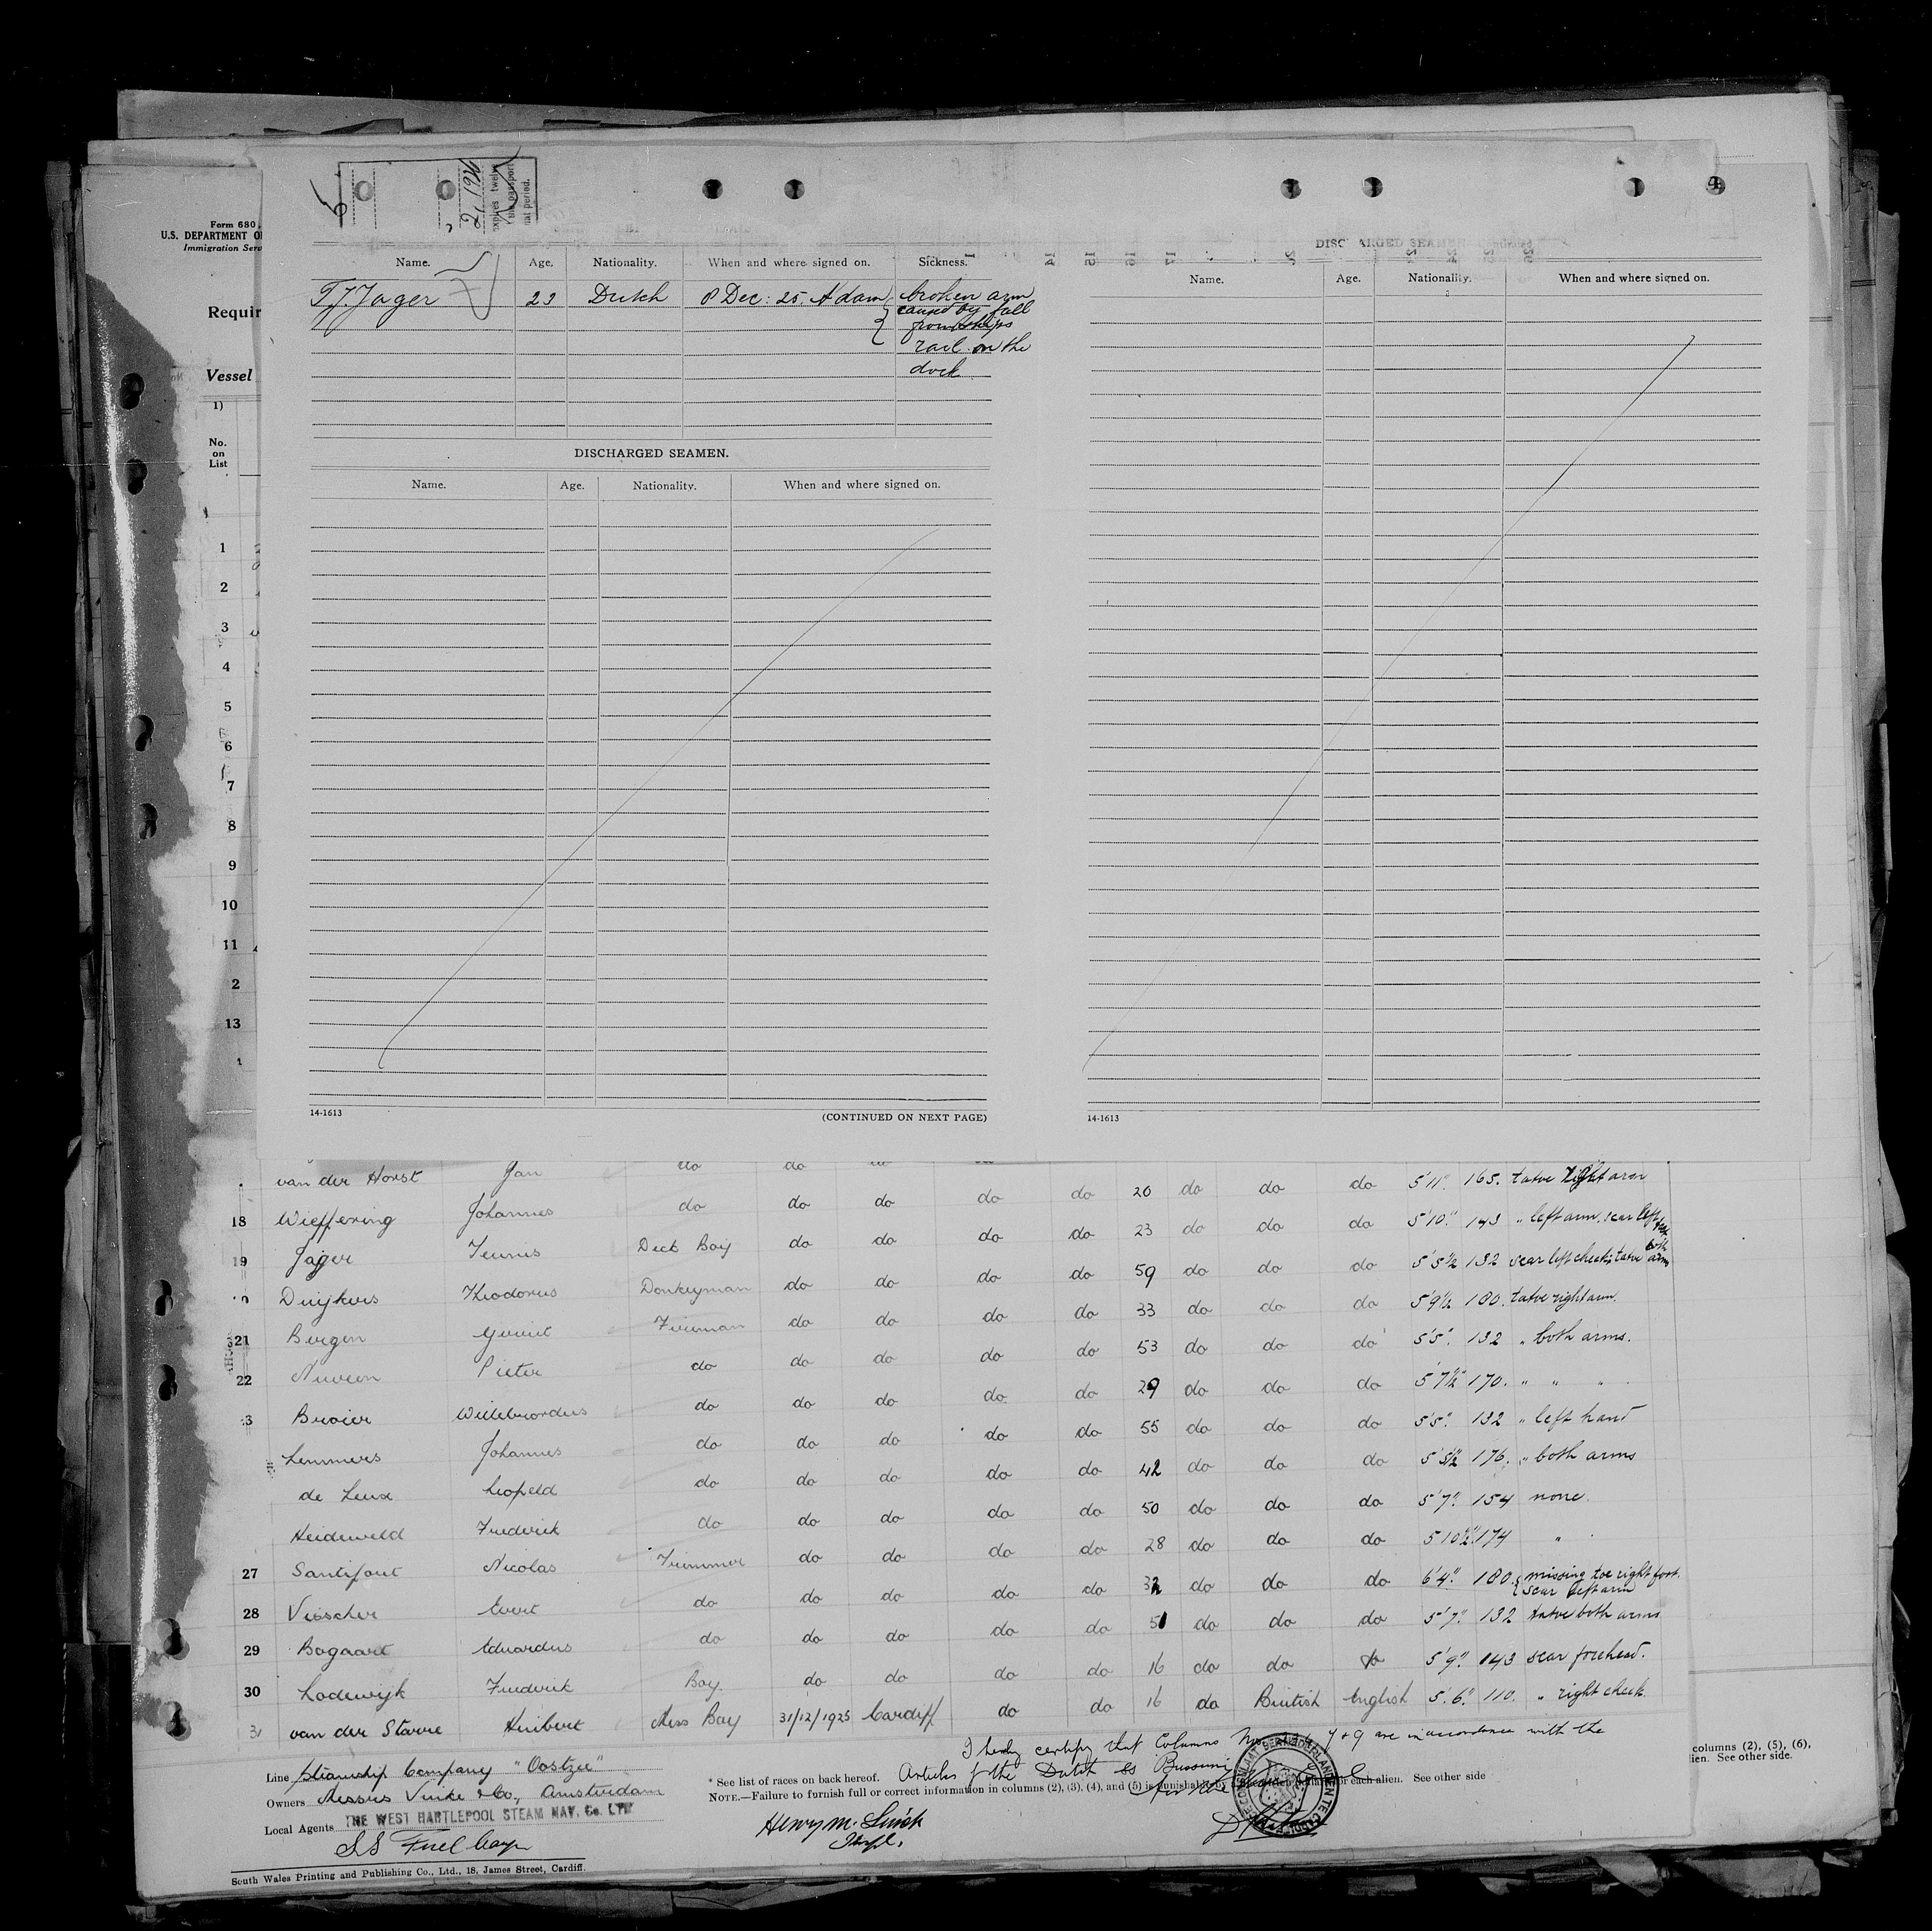 2, 1926
Form 680
U.S. DEPARTMENT O
Immigration Serv
Requir
Vessel
1)
No.
on
List
1
2
3
4
5
6
7
8
9
10
11
2
13
DISCHARGED SEAMEN
Name. Age. Nationality. When and where signed on. Sickness.
T. J. Jager 23 Dutch 8 Dec: 25. A'dam broken arm
caused by fall
from ships
rail on the
dock
DISCHARGED SEAMEN.
Name. Age. Nationality. When and where signed on.
14-1613 (CONTINUED ON NEXT PAGE)
Name. Age. Nationality. When and where signed on.
14-1613
van der Horst Jan do do do do do 20 do do do 5'11" 165. tatoe right arm
18 Wieffering Johannes do do do do do 23 do do do 5'10" 143 " left arm, scar left
19 Jager Teunis Deck Boy do do do do 59 do do do 5'5½ 132 scar left cheek, tatoe both arms
Duijkers Theodorus Donkeyman do do do do 33 do do do 5'9½ 180. tatoe right arm.
21 Bergen Gerrit Fireman do do do do 53 do do do 5'5" 132 " both arms.
22 Pieter do do do do do 29 do do do 5'7½ 170. " " "
3 Willebrordus do do do do do 55 do do do 5'5" 132 " left hand
Lemmers Johannes do do do do do 42 do do do 5'5½ 176. " both arms
de Leopold do do do do do 50 do do do 5'7" 154 none.
Heideveld Frederik do do do do do 28 do do do 5'10½" 174 "
27 Santifort Nicolas Trimmer do do do do 32 do do do 6'4" 180. missing toe right foot.
scar left arm
28 Visscher Evert do do do do do 51 do do do 5'7" 132 tatoe both arms
29 Bogaart Eduardus do do do do do 16 do do do 5'9" 143 scar forehead.
30 Lodewijk Frederik Boy. do do do do 16 do British English 5'.6" 110. " right cheek.
3 van der Starre Huibert Mess Boy 31/12/1925 Cardiff do do
I hereby certify that Columns 7 + 9 are in accordance with the
Articles of the Dutch ss Bussum
Line Steamship Company "Oostzee"
Owners Messrs Vinke & Co., Amsterdam
Local Agents THE WEST HARTLEPOOL STEAM NAV. Co. LTD
South Wales Printing and Publishing Co., Ltd., 18, James Street, Cardiff.
* See list of races on back hereof.
NOTE.—Failure to furnish full or correct information in columns (2), (3), (4), and (5) is punishable by for each alien. See other side
columns (2), (5), (6),
lien. See other side.
Henry M.